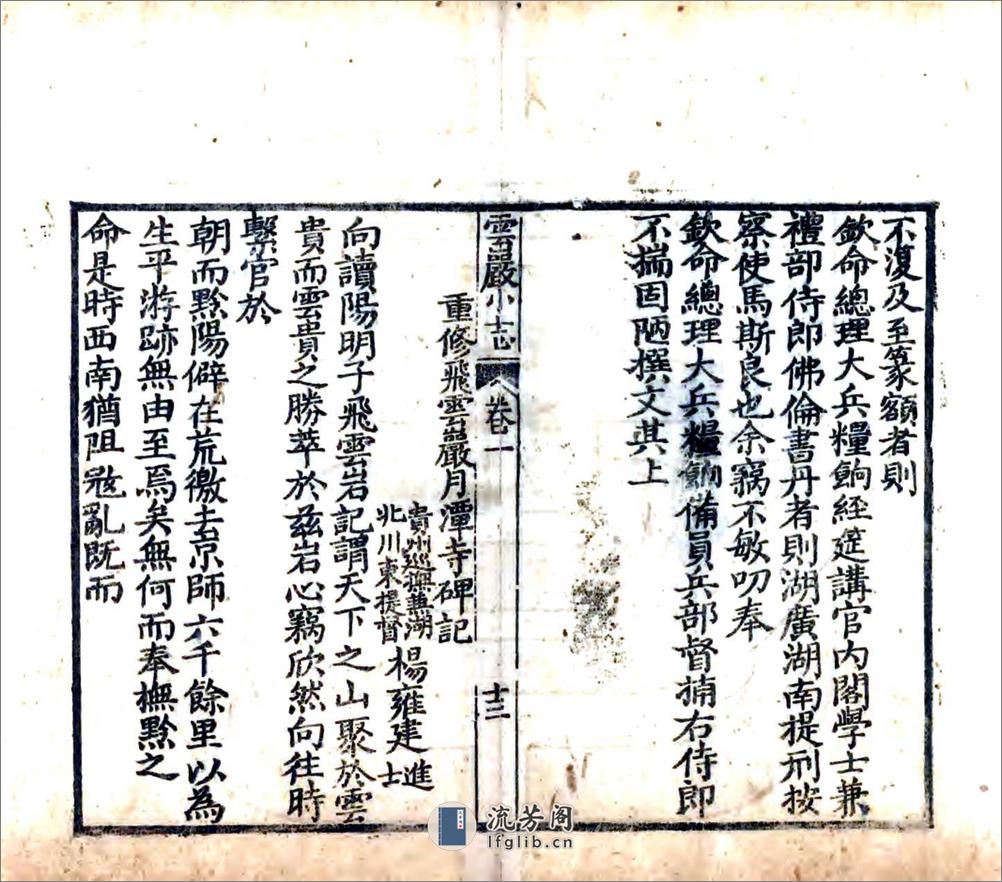 不復及至篆額者則
欽命總理大兵糧餉經筵講官內閣學士兼
禮部侍郎佛倫書丹者則湖廣湖南提刑按
察使馬斯良也余竊不敏叨奉
欽命總理大兵糧餉備員兵部督捕右侍郎
不揣固陋撰文其上
雲巖小志
卷一
十三
重修飛雲巖月潭寺碑記
貴州巡撫兼湖
北川東提督
楊雍建進士
向讀陽明子飛雲岩記謂天下之山聚於雲
貴而雲貴之勝萃於茲岩心竊欣然向往時
繫官於
朝而黔陽僻在荒徼去京師六千餘里以為
生平游跡無由至焉矣無何而奉撫黔之
命是時西南猶阻寇亂既而
流芳阁
lfglib.cn